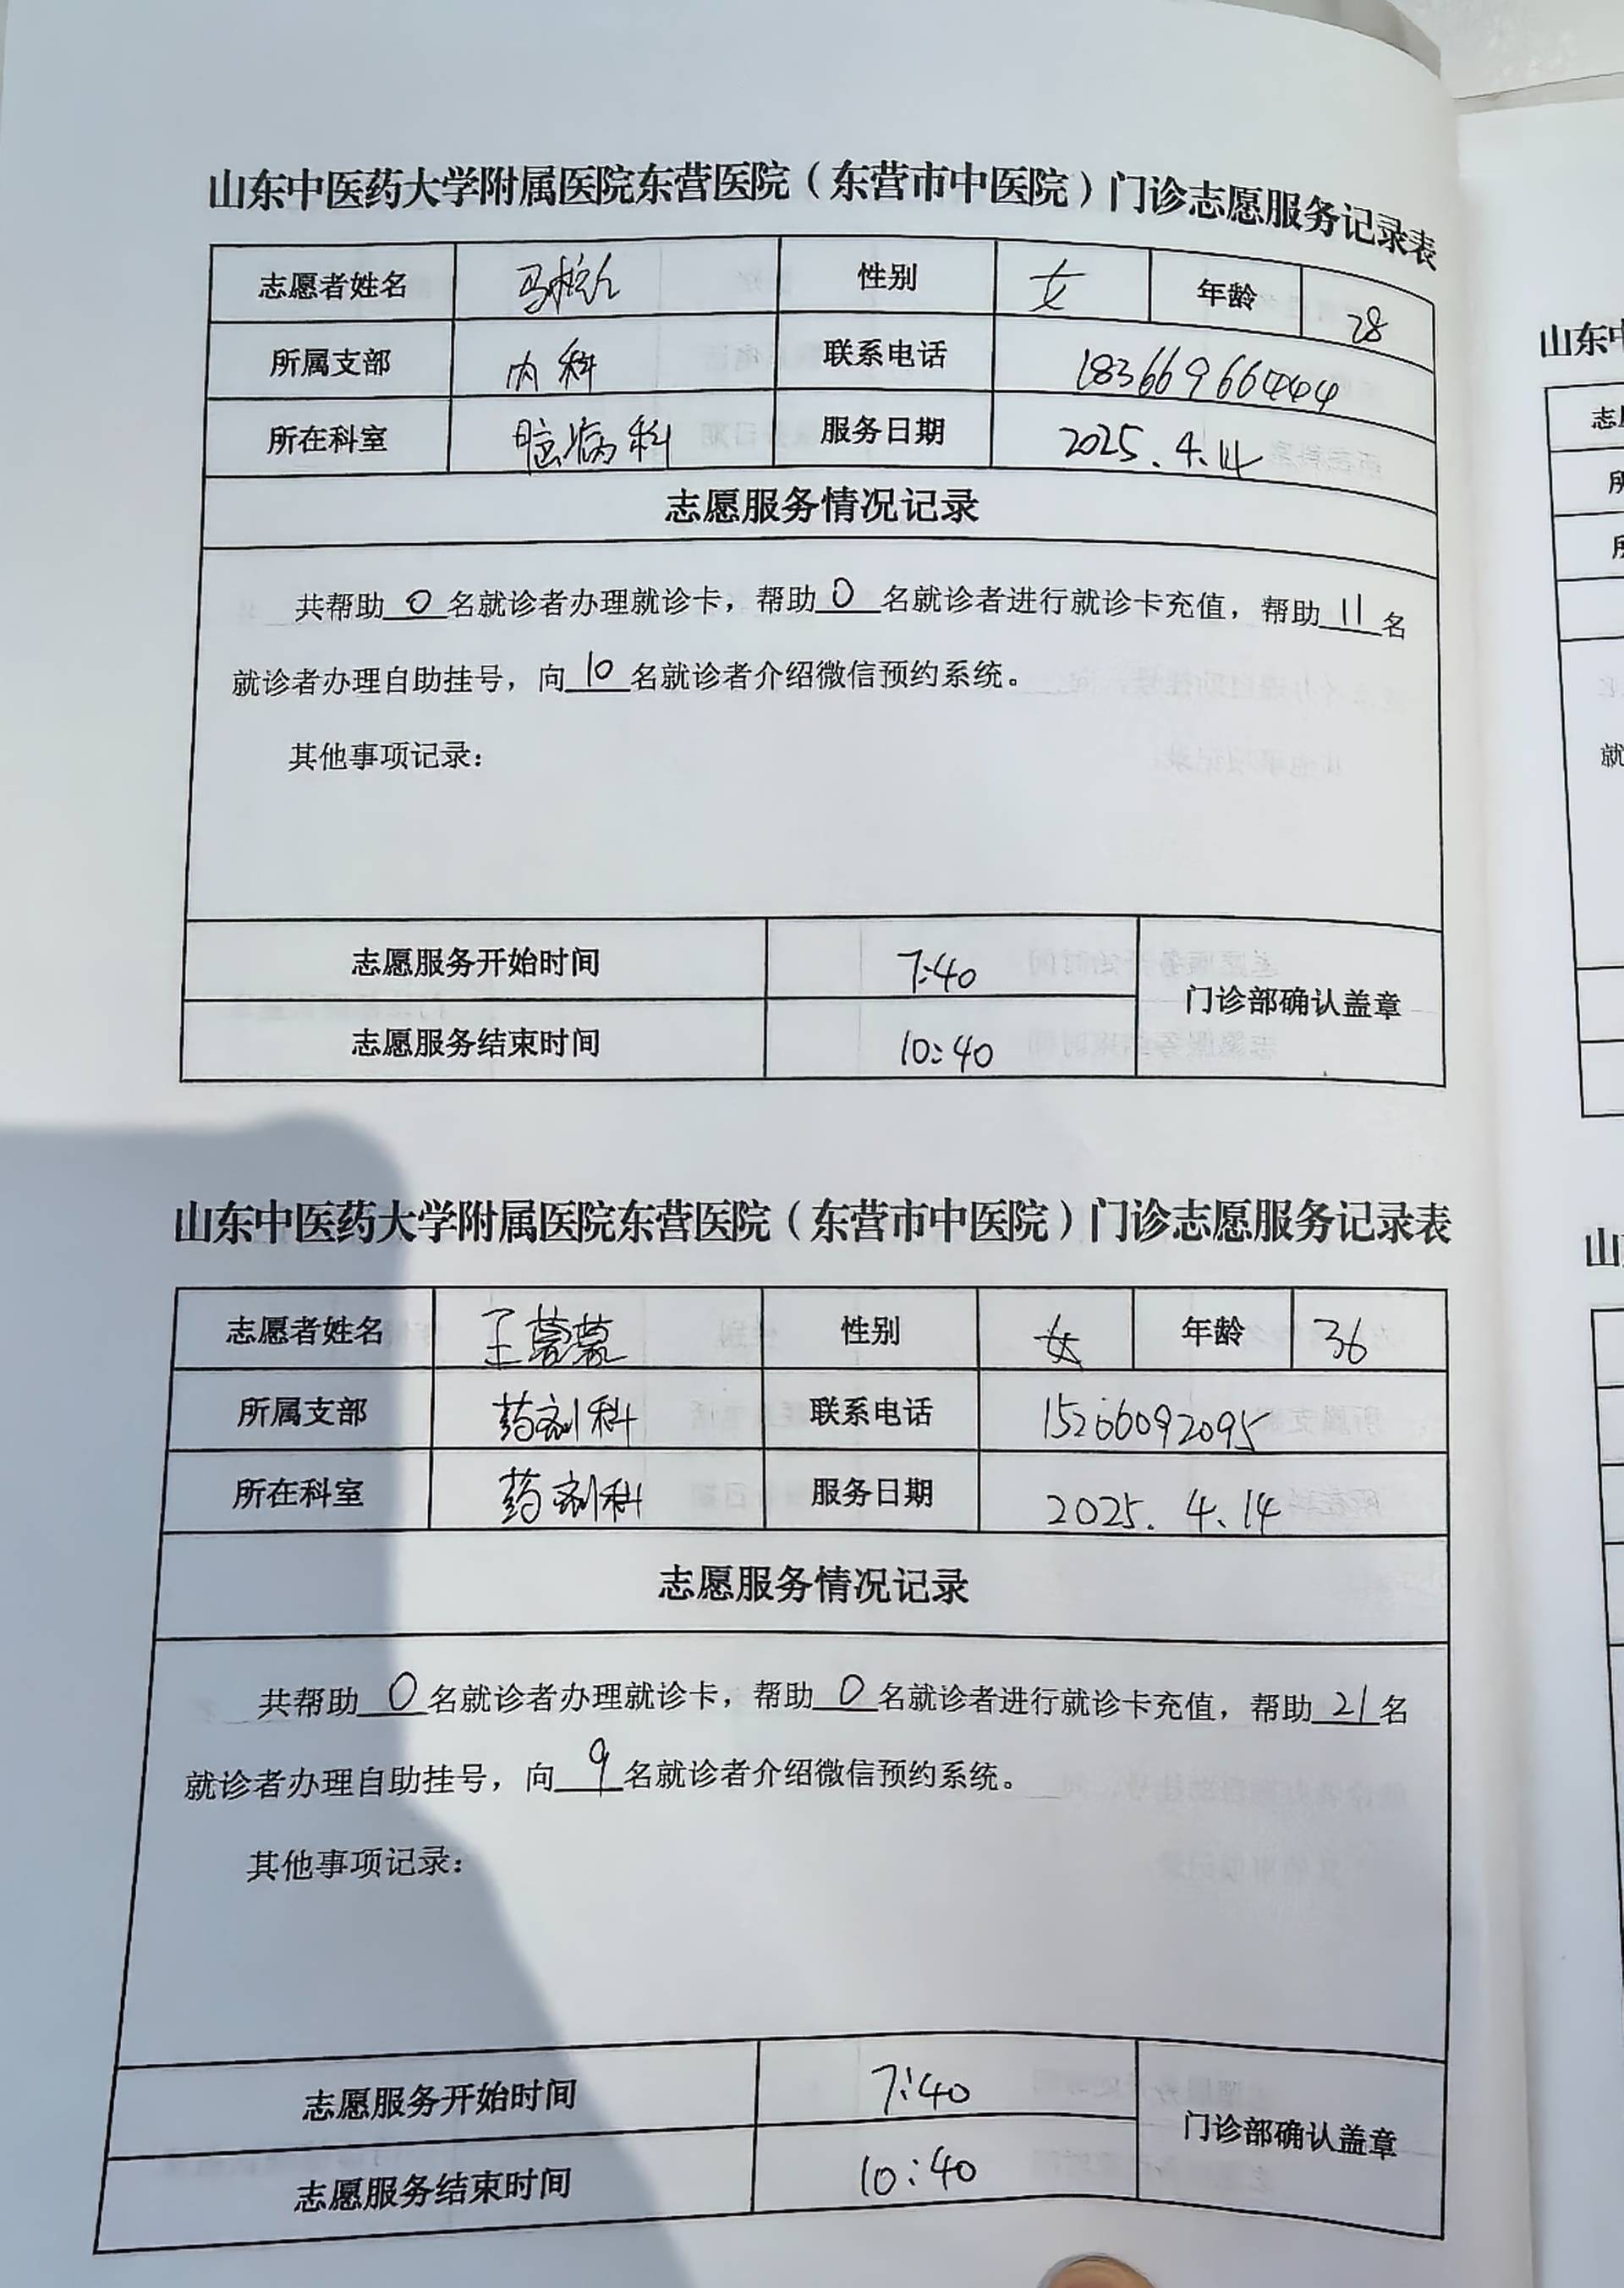 山东中医药大学附属医院东营医院（东营市中医院）门诊志愿服务记录表
志愿者姓名 马 性别 女 年龄 28
所属支部 内科 联系电话 18366966444
所在科室 脑病科 服务日期 2025.4.14
志愿服务情况记录
共帮助 0 名就诊者办理就诊卡，帮助 0 名就诊者进行就诊卡充值，帮助 11 名
就诊者办理自助挂号，向 10 名就诊者介绍微信预约系统。
其他事项记录：
志愿服务开始时间 7:40
门诊部确认盖章
志愿服务结束时间 10:40
山东中医药大学附属医院东营医院（东营市中医院）门诊志愿服务记录表
志愿者姓名 王 性别 女 年龄 36
所属支部 药剂科 联系电话 15266092095
所在科室 药剂科 服务日期 2025.4.14
志愿服务情况记录
共帮助 0 名就诊者办理就诊卡，帮助 0 名就诊者进行就诊卡充值，帮助 21 名
就诊者办理自助挂号，向 9 名就诊者介绍微信预约系统。
其他事项记录：
志愿服务开始时间 7:40
门诊部确认盖章
志愿服务结束时间 10:40
山东中
志愿
所
所
就
山